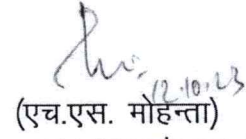 12.10.23
(एच.एस. मोहन्ता)